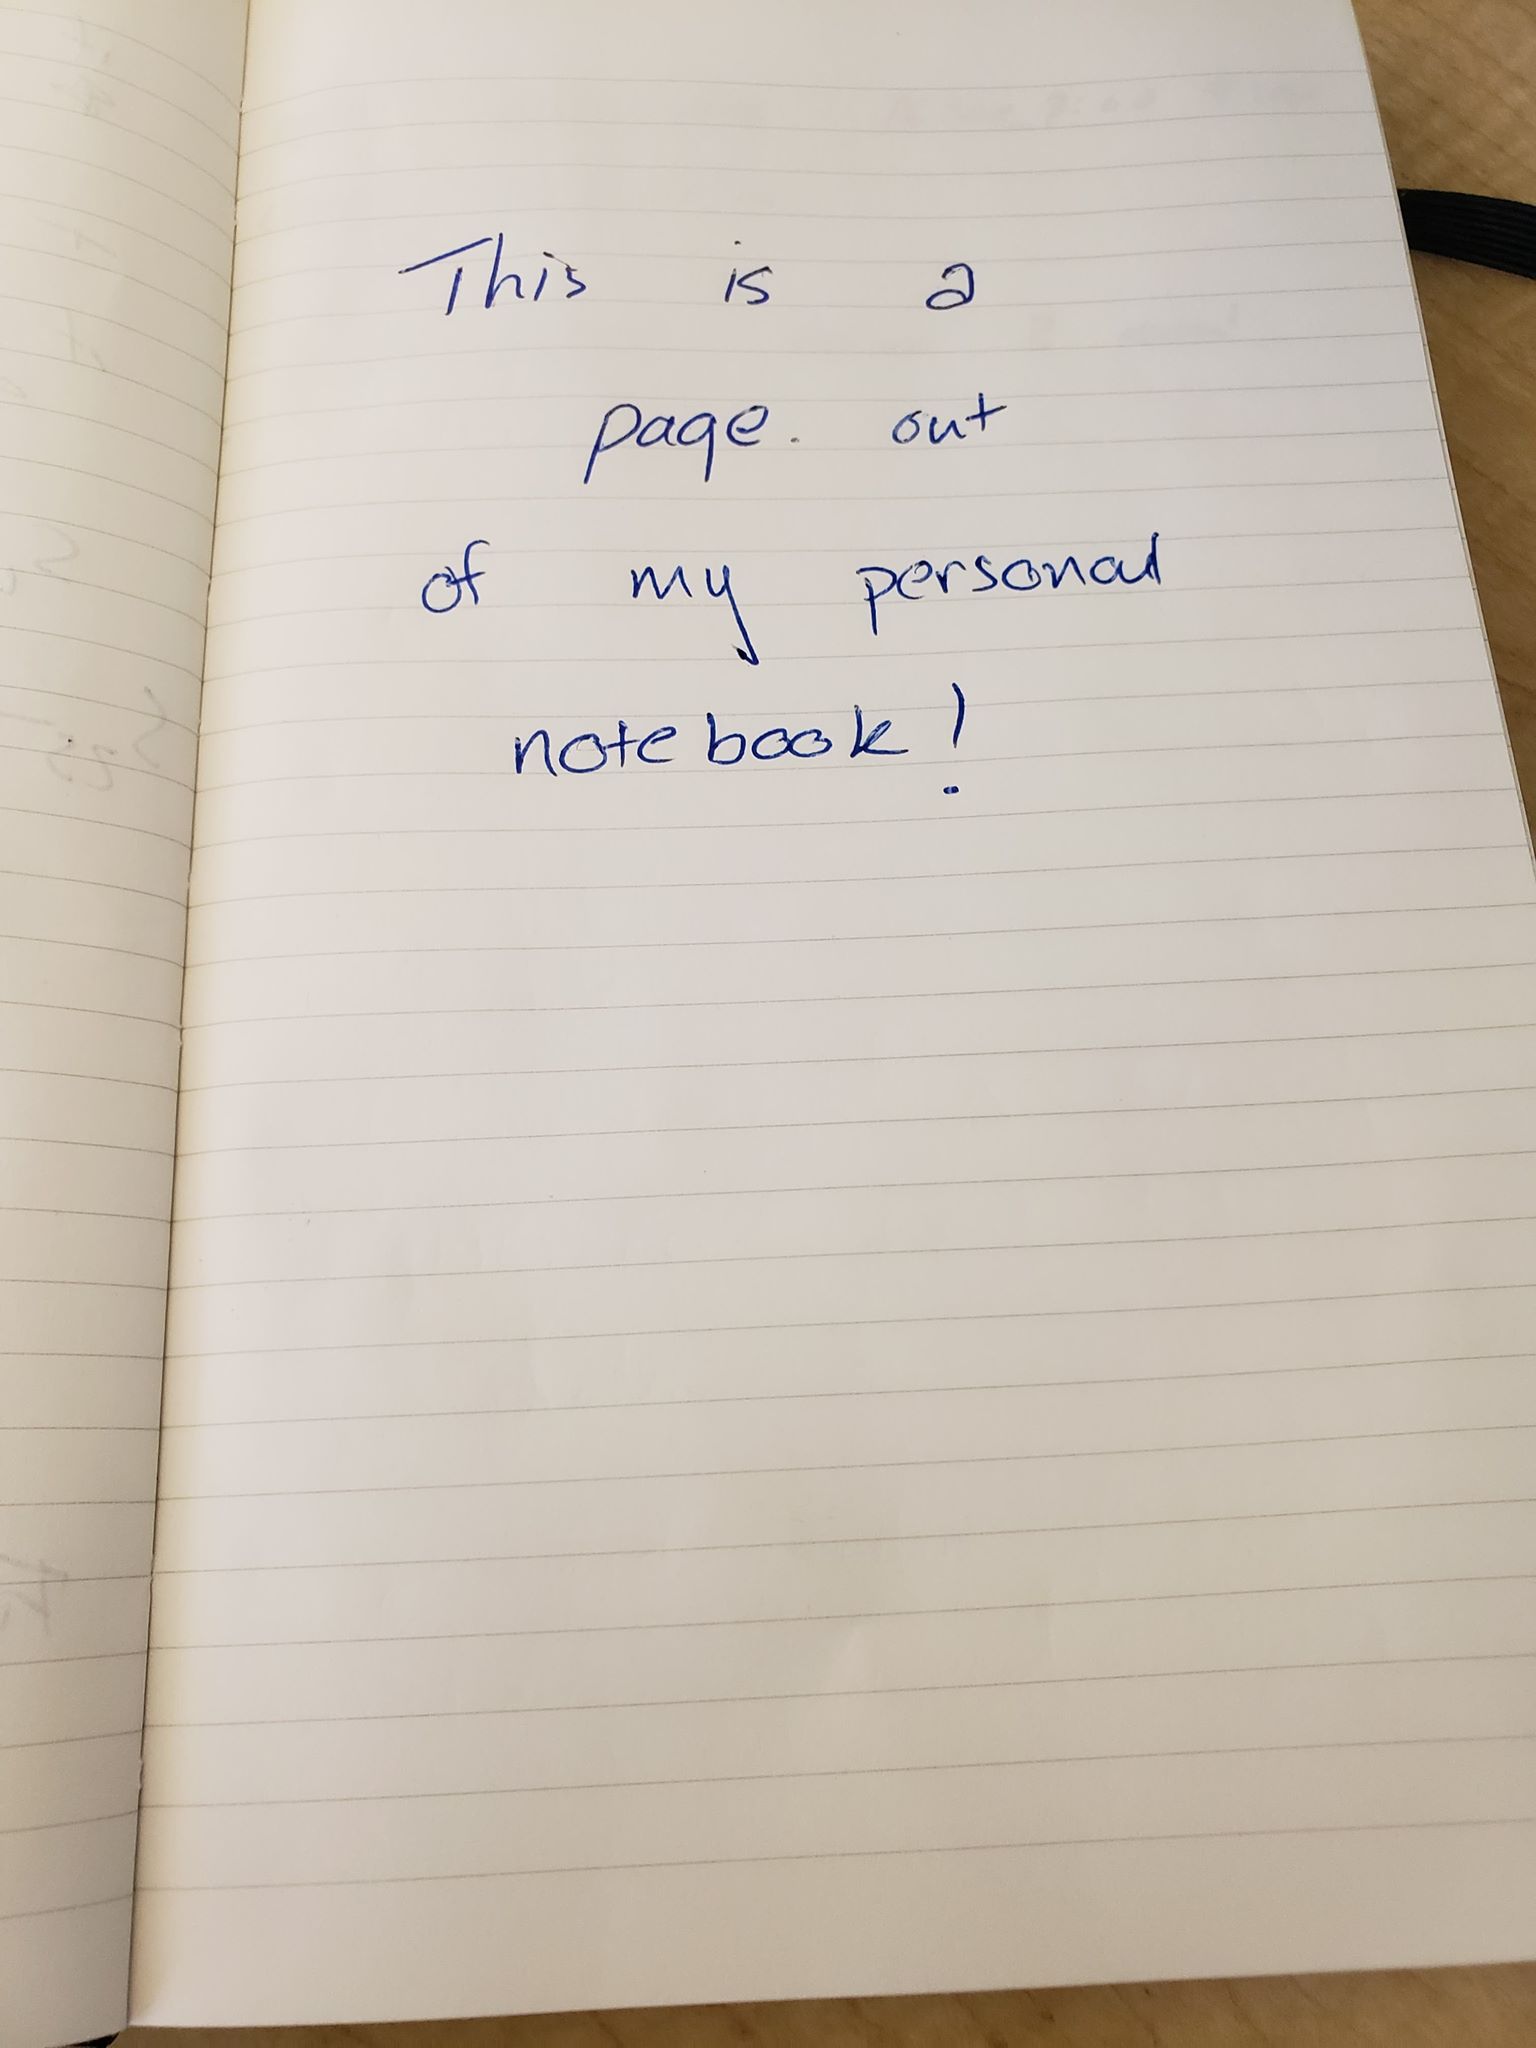 This is a
page. out
of my personal
notebook!